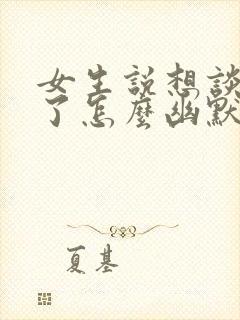 女生説想談
了怎麼幽默
夏基